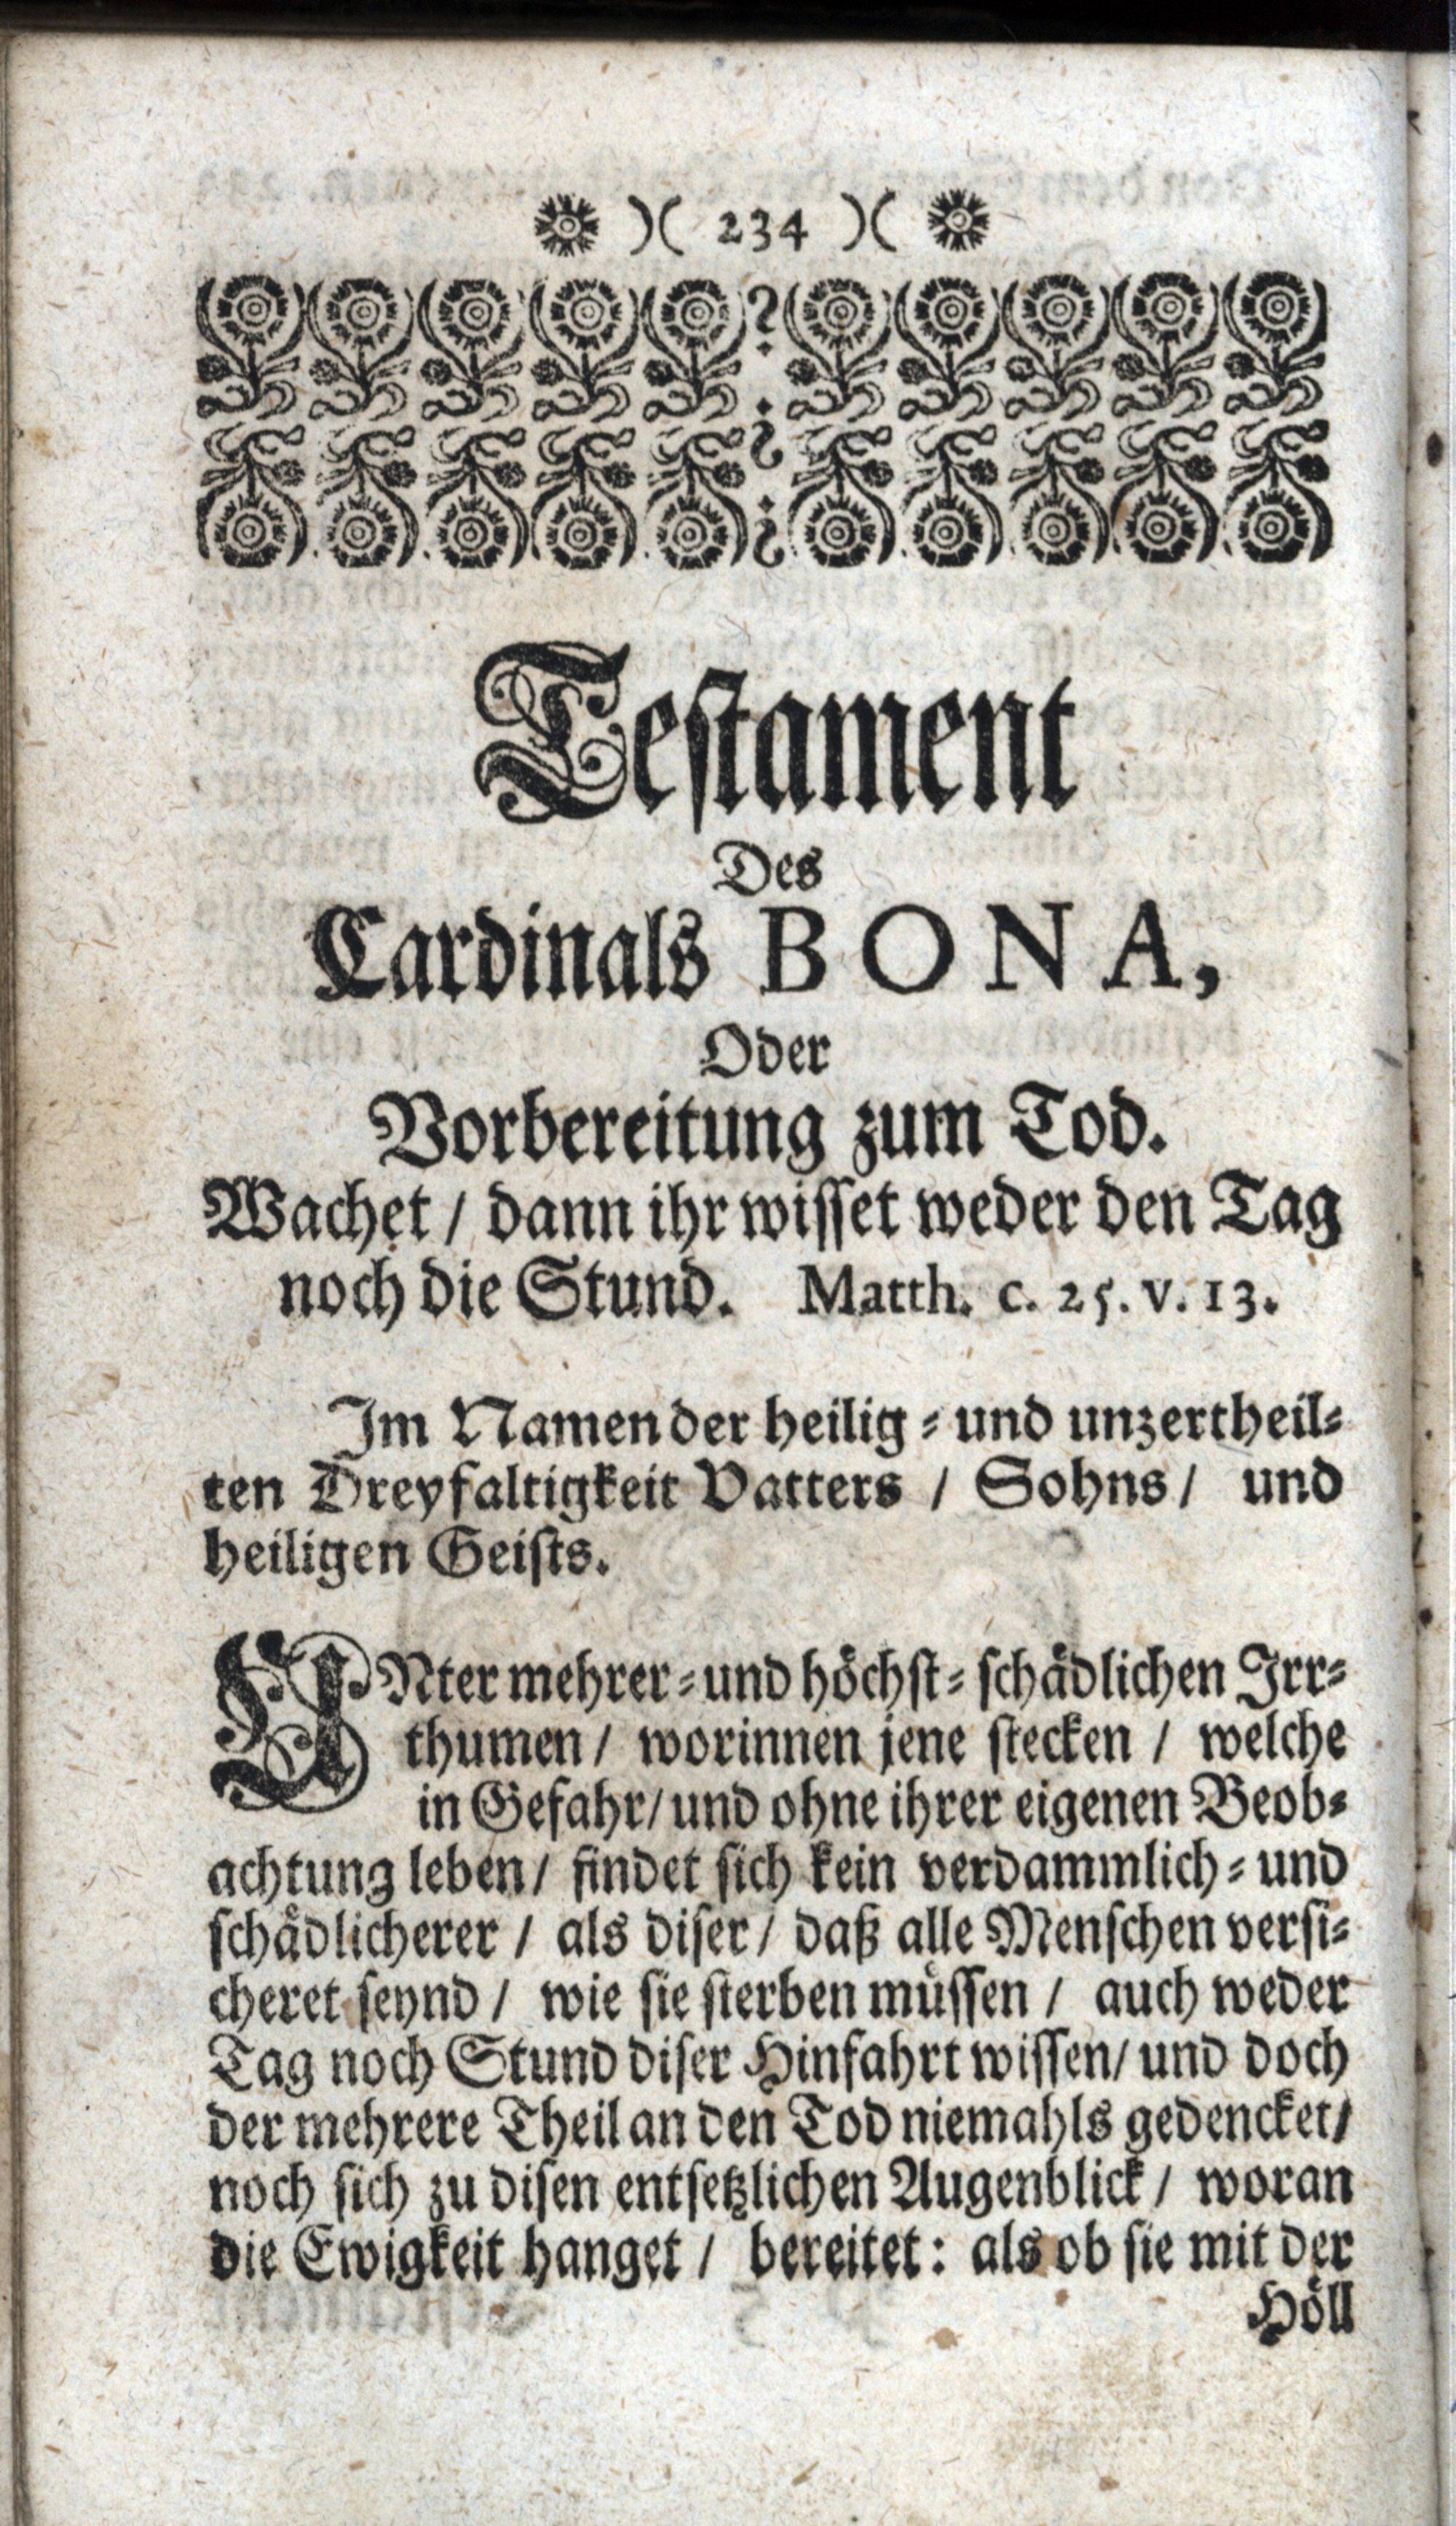 )( 234 )(
Testament
Des
Cardinals BONA,
Oder
Vorbereitung zum Tod.
Wachet / dann ihr wisset weder den Tag
noch die Stund. Matth. c. 25. v. 13.
Im Namen der heilig- und unzertheil-
ten Dreyfaltigkeit Vatters / Sohns / und
heiligen Geists.
UNter mehrer- und höchst-schädlichen Irr-
thumen / worinnen jene stecken / welche
in Gefahr / und ohne ihrer eigenen Beob-
achtung leben / findet sich kein verdammlich- und
schädlicherer / als diser / daß alle Menschen versi-
cheret seynd / wie sie sterben müssen / auch weder
Tag noch Stund diser Hinfahrt wissen / und doch
der mehrere Theil an den Tod niemahls gedencket /
noch sich zu disen entsetzlichen Augenblick / woran
die Ewigkeit hanget / bereitet: als ob sie mit der
Höll